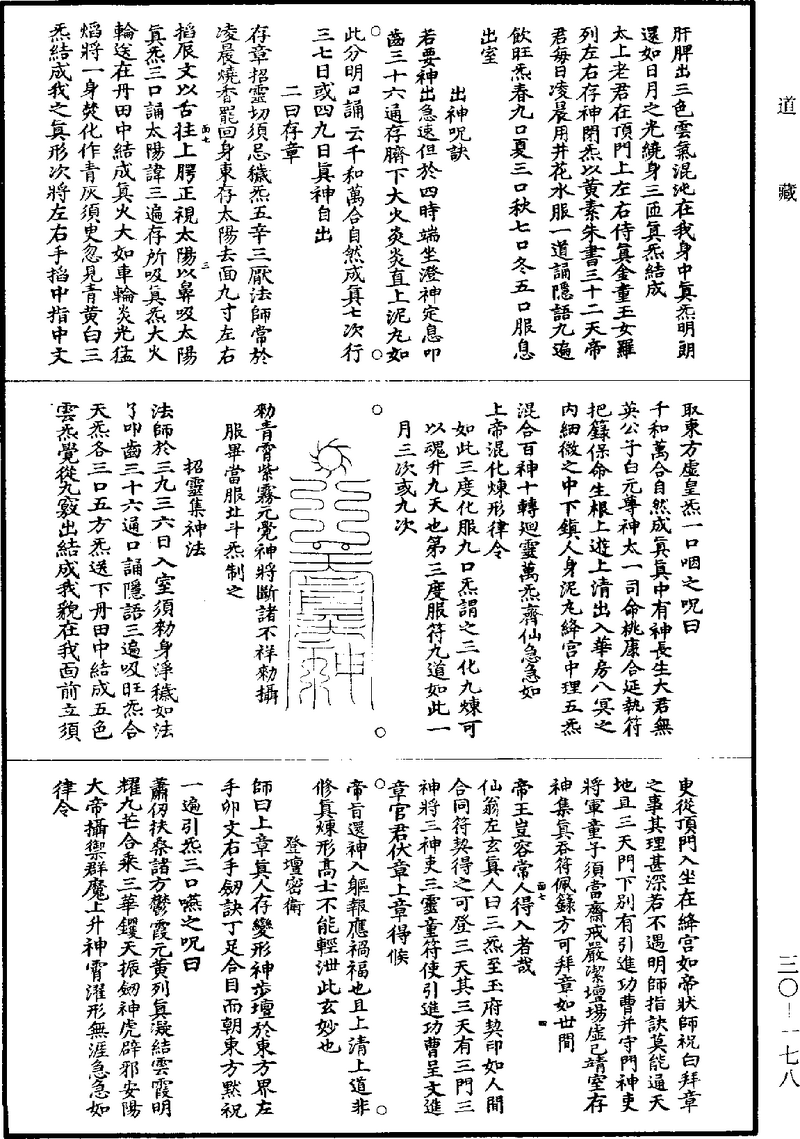 道藏
肝脾出三色雲氣混沌在我身中真炁明朗
還如日月之光繞身三匝真炁結成
太上老君在頂門上左右侍真金童玉女羅
列左右存神閉炁以黃素朱書三十二天帝
君每日凌晨用井花水服一道誦隱語九遍
飲旺炁春九口夏三口秋七口冬五口服息
出室
出神呪訣
若要神出急速但於四時端坐澄神定息叩
齒三十六通存臍下大火炎炎直上泥丸如
此分明口誦云千和萬合自然成真七次行
三七日或四九日真神自出
二曰存章
存章招靈切須忌穢炁五辛三厭法師常於
凌晨燒香罷回身東存太陽去面九寸左右
搯辰文以舌拄上腭正視太陽以鼻吸太陽
真炁三口誦太陽諱三遍存所吸真炁大火
輪送在丹田中結成真火大如車輪炎光猛
熖將一身焚化作青灰須臾忽見青黃白三
炁結成我之真形次將左右手搯中指中文
面七
三
取東方虛皇炁一口咽之呪曰
千和萬合自然成真真中有神長生大君無
英公子白元尊神太一司命桃康合延執符
把籙保命生根上遊上清出入華房八冥之
內細微之中下鎮人身泥丸絳宮中理五炁
混合百神十轉廻靈萬炁齊仙急急如
上帝混化煉形律令
如此三度化服九口炁謂之三化九煉可
以魂升九天也第三度服符九道如此一
月三次或九次
勑青霄紫霧元覺神將斷諸不祥勑攝
服畢當服北斗炁制之
招靈集神法
法師於三九三六日入室須勑身淨穢如法
了叩齒三十六通口誦隱語三遍吸旺炁合
天炁各三口五方炁送下丹田中結成五色
雲炁覺從九竅出結成我貌在我面前立須
臾從頂門入坐在絳宮如帝狀師祝白拜章
之事其理甚深若不遇明師指訣莫能通天
地且三天門下別有引進功曹并守門神吏
將軍童子須當齋戒嚴潔壇場虛己靖室存
神集真吞符佩籙方可拜章如世間
帝王豈容常人得入者哉
面七
四
仙翁左玄真人曰三炁至玉府契印如人間
合同符契得之可登三天其三天有三門三
神將三神吏三靈童符使引進功曹呈文進
章官君伏章上章得候
帝旨還神入軀報應禍福也且上清上道非
修真煉形高士不能輕泄此玄妙也
登壇密衛
師曰上章真人存變形神步壇於東方界左
手卯文右手劒訣丁足合目而朝東方黙祝
一遍引炁三口嚥之呪曰
蕭仞扶桑諸方鬱霞元黃列真凝結雲霞明
耀九芒合乘三華钁天振劒神虎辟邪安陽
大帝攝禦群魔上升神霄濯形無涯急急如
律令
三〇—一七八